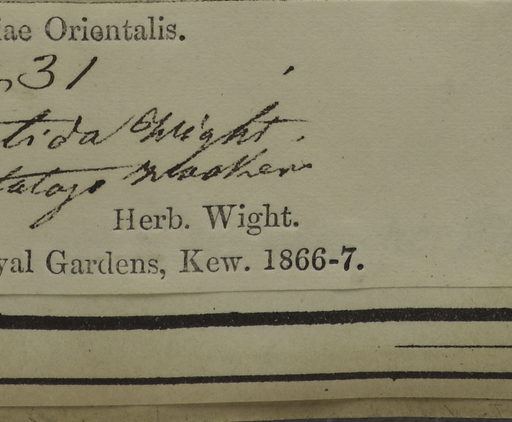 iae Orientalis.
31
tida Wight.
Herb. Wight.
yal Gardens, Kew. 1866-7.